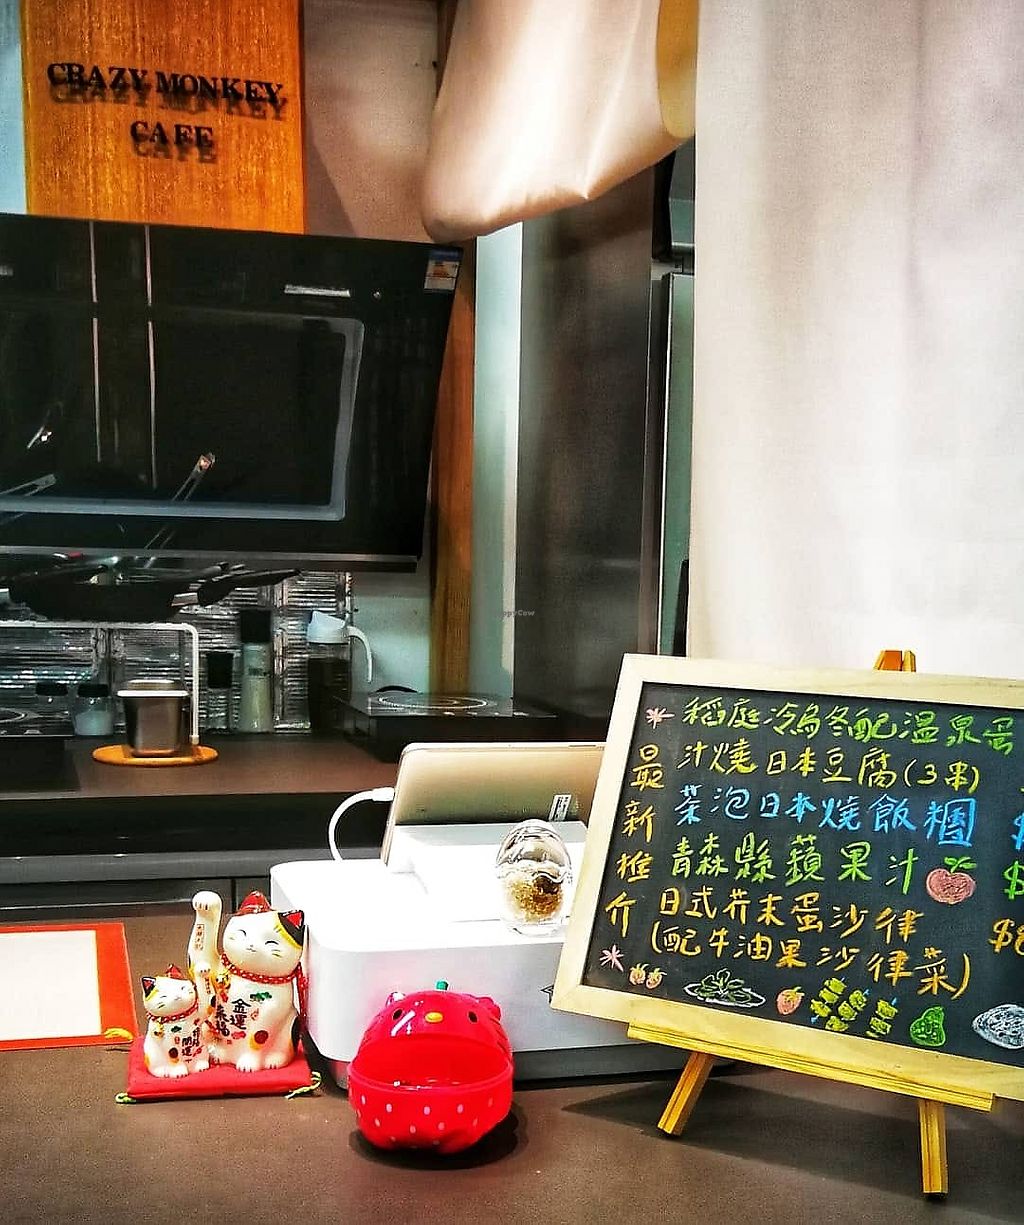 CRAZY MONKEY
CAFE
最新推介
稻庭冷烏冬配温泉蛋
汁燒日本豆腐(3串)
茶泡日本燒飯糰
$
青森縣蘋果汁
$
日式芥末蛋沙律
$8
(配牛油果沙律菜)
金運
開運